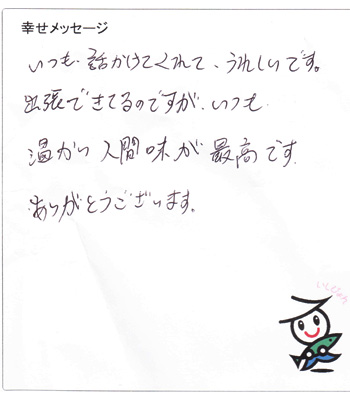 幸せメッセージ
いつも、話かけてくれて、うれしいです。
出張できてるのですが、いつも
温かい人間味が最高です。
ありがとうございます。